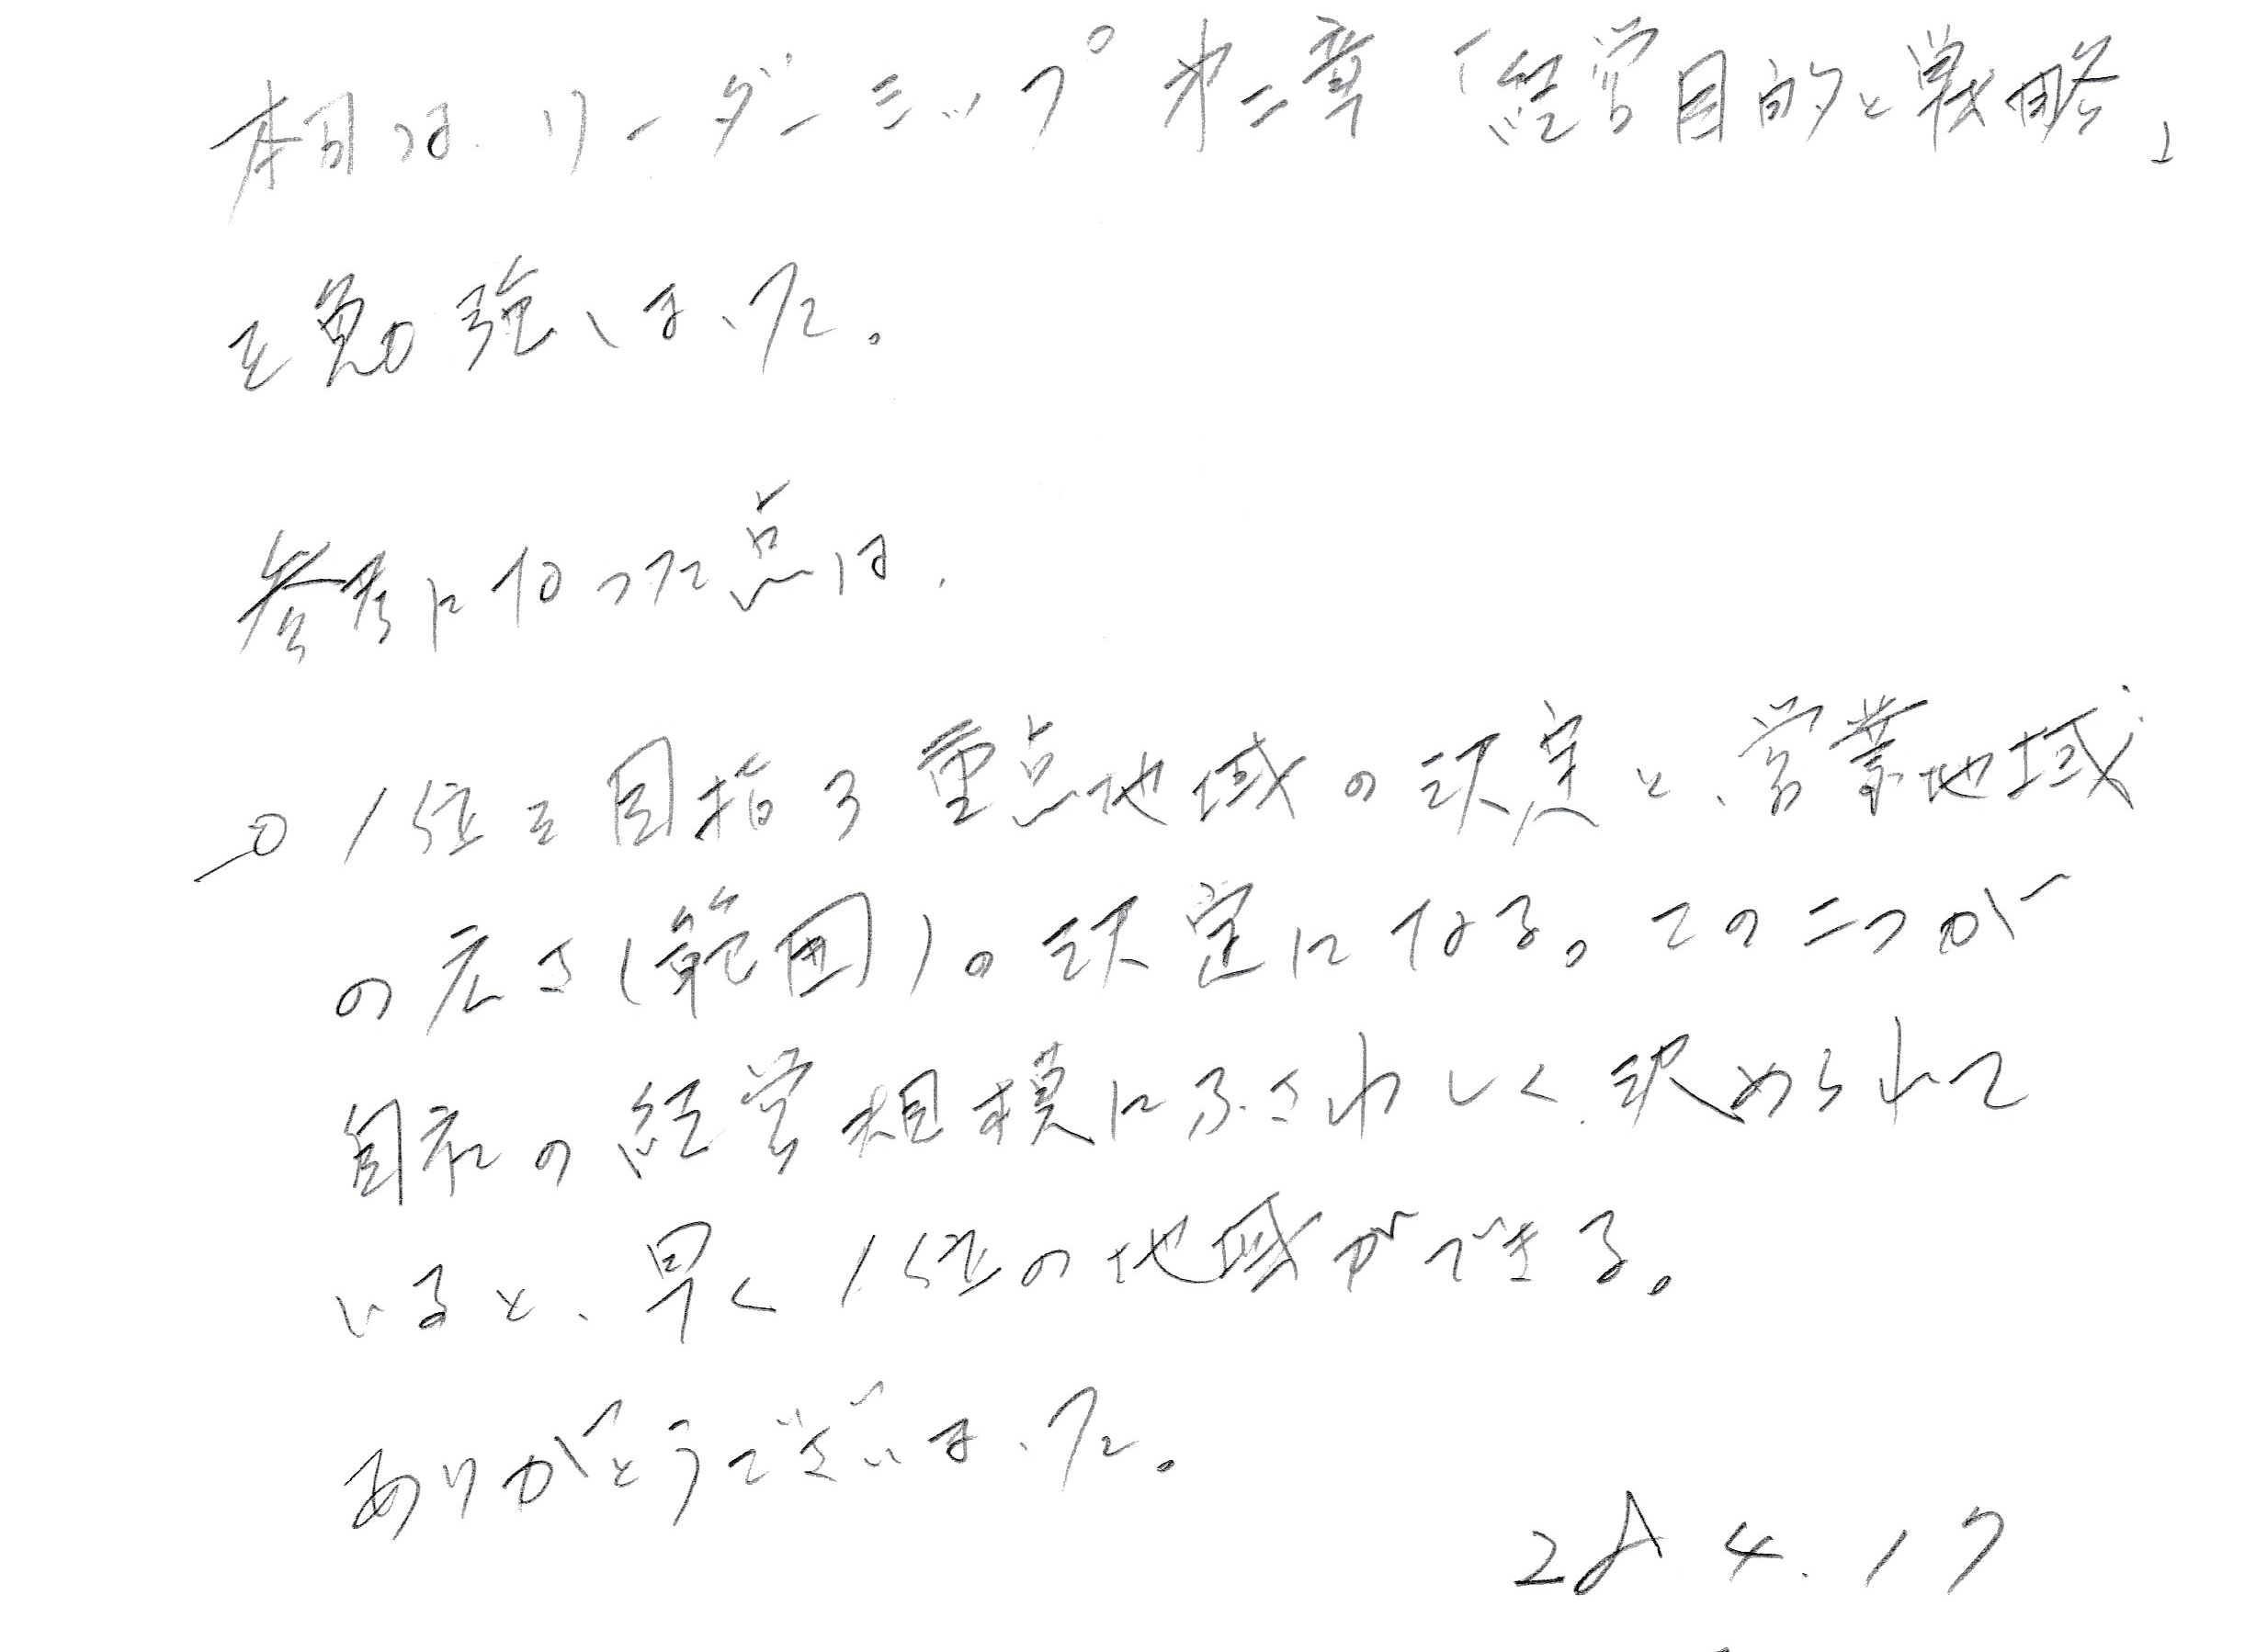 本日は、リーダーシップ 第二章「経営目的と戦略」
を勉強しました。
参考になった点は、
1位を目指す重点地域の決定と、営業地域
の広さ(範囲)の決定になる。この二つが
自社の経営規模にふさわしく決められて
いると、早く1位の地域ができる。
ありがとうございました。
28 4.17